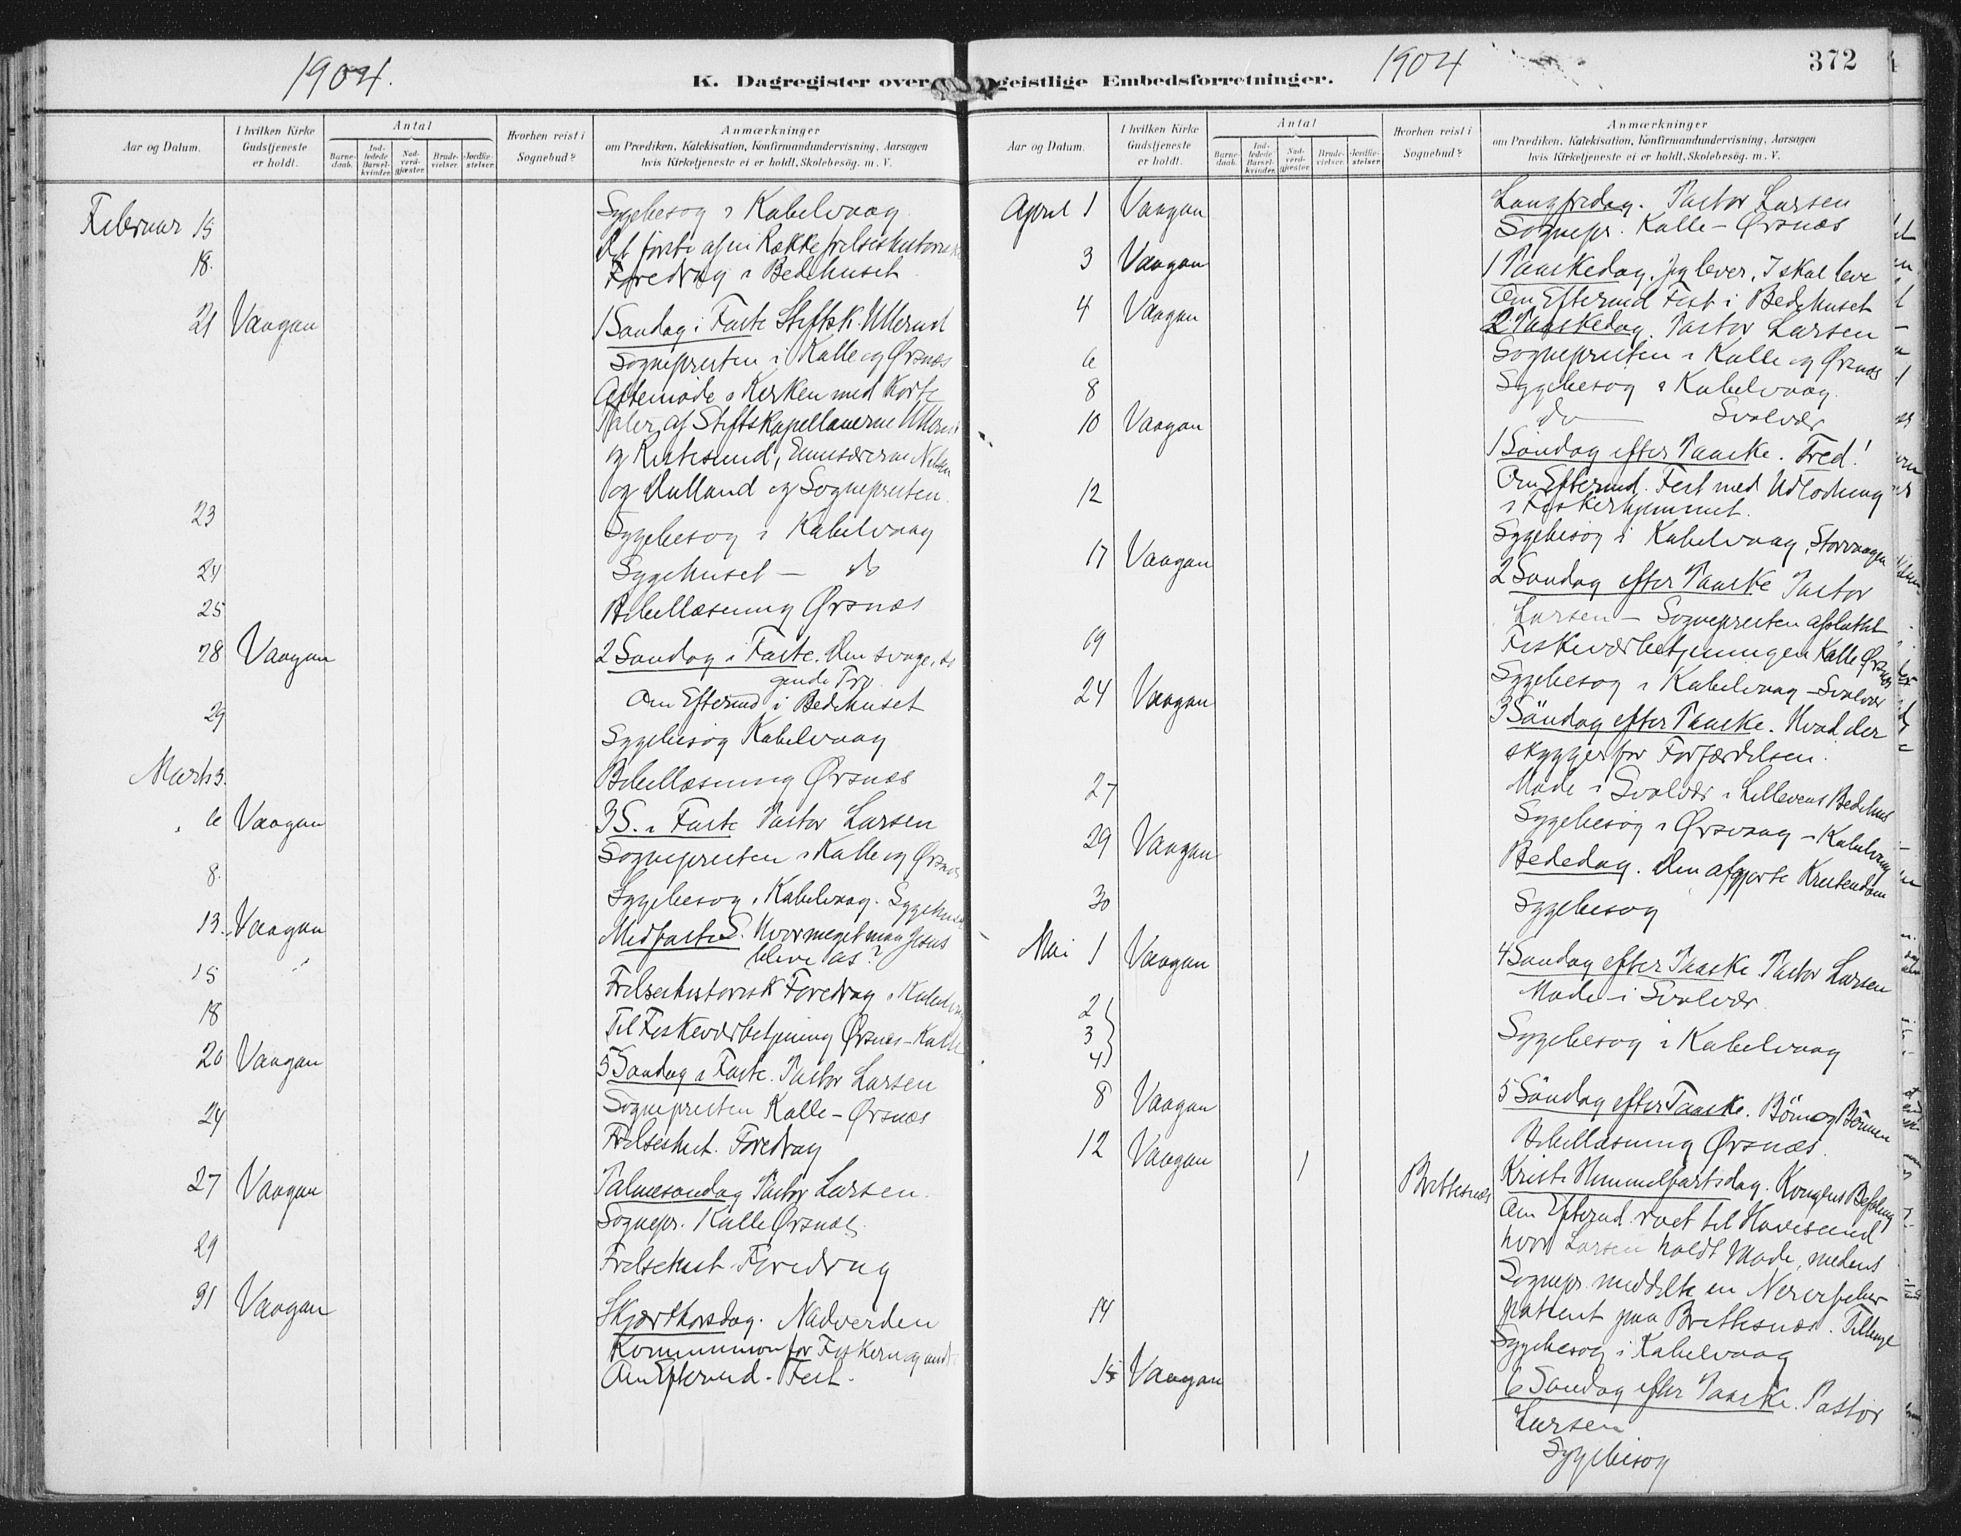 1904.
K. Dagregister over geistlige Embedsforretninger.
1904
372
Aar og Datum.
I hvilken Kirke Gudstjeneste er holdt.
Antal
Barnedaab.
Indledede Barselkvinder.
Nadverdgjester.
Brudevielser.
Jordfæstelser.
Hvorhen reist i Sognebud?
Anmærkninger
om Prædiken, Katekisation, Konfirmandundervisning, Aarsagen
hvis Kirketjeneste ei er holdt, Skolebesøg. m. V.
Februar 15 Sygebesøg i Kabelvaag
18. Det første af en Række frelseshistoriske
Foredrag i Bedehuset
21 Vaagan 1 Søndag i Faste Stiftsk. Ullerud
Sognepresten i Kalle og Ørsnæs
Aftenmøde i Kirken med korte
Taler af Stiftskapellanerne
og
og Sognepresten.
23 Sygebesøg i Kabelvaag
24 Sygehuset — do
25 Bibellæsning Ørsnæs
28 Vaagan 2 Søndag i Faste. Den svage,
gende Tro
Om Eftermd i Bedehuset
29 Sygebesøg Kabelvaag
Marts 3. Bibellæsning Ørsnæs
6 Vaagan 3 S. i Faste Pastor Larsen
Sognepresten i Kalle og Ørsnæs
8. Sygebesøg i Kabelvaag. Sygehuset
13. Vaagan Midfaste S. Hvor meget maa Jesus
blive os?
15 Frelseshistorisk Foredrag i Kabelvaag
18 Til Fiskeværbetjening Ørsnæs – Kalle
20 Vaagan 5 Søndag i Faste. Pastor Larsen
Sognepresten Kalle – Ørsnæs
24 Frelseshist. Foredrag
27 Vaagan Palmesøndag Pastor Larsen.
Sognepr. Kalle Ørsnæs.
29 Frelseshist. Foredrag
31 Vaagan Skjærthorsdag. Nadverden
Kommunion for Fiskern og andre
Om Eftermd. Fest.
Aar og Datum.
I hvilken Kirke Gudstjeneste er holdt.
Antal
Barnedaab.
Indledede Barselkvinder.
Nadverdgjester.
Brudevielser.
Jordfæstelser.
Hvorhen reist i Sognebud?
Anmærkninger
om Prædiken, Katekisation, Konfirmandundervisning, Aarsagen
hvis Kirketjeneste ei er holdt, Skolebesøg. m. V.
April 1 Vaagan Langfredag. Pastor Larsen
Sognepr. Kalle – Ørsnæs
3 Vaagan 1 Paaskedag. Jeg lever, I skal leve
Om Eftermd Fest i Bedehuset
4 Vaagan 2 Paaskedag. Pastor Larsen
Sognepresten i Kalle og Ørsnæs
6 Sygebesøg i Kabelvaag.
8 do Svolvær
10 Vaagan 1 Søndag efter Paaske. Fred!
Om Eftermd. Fest med Udlodning
i Fiskerhjemmet.
12 Sygebesøg i Kabelvaag, Storvaagan
17 Vaagan 2 Søndag efter Paaske Pastor
Larsen – Sognepresten afsluttet
Fiskeværbetjeningen Kalle Ørsnæs
19 Sygebesøg i Kabelvaag – Svolvær
24 Vaagan 3 Søndag efter Paaske. Hvad der
skygger for Forfærdelsen.
Møde i Svolvær i Lillevens Bedehus
27 Sygebesøg i Ørsvaag – Kabelvaag
29 Vaagan Bededag. Den afgjorte Kristendom
30 Sygebesøg
Mai 1 Vaagan 4 Søndag efter Paaske Pastor Larsen
Møde i Svolvær.
2
3 Sygebesøg i Kabelvaag
4
8 Vaagan 5 Søndag efter Paaske. Bøn og Bønnen
Bibellæsning Ørsnæs.
12 Vaagan 1 Brettesnæs Kristi Himmelfartsdag. Kongens Befaling
Om Eftermd. roet til Havesund
hvor Larsen holdt Møde, medens
Sognepr. meddelte en Nervefeber
patient paa Brettesnæs.
14 Sygebesøg i Kabelvaag
15 Vaagan 6 Søndag efter Paaske. Pastor
Larsen
Sygebesøg